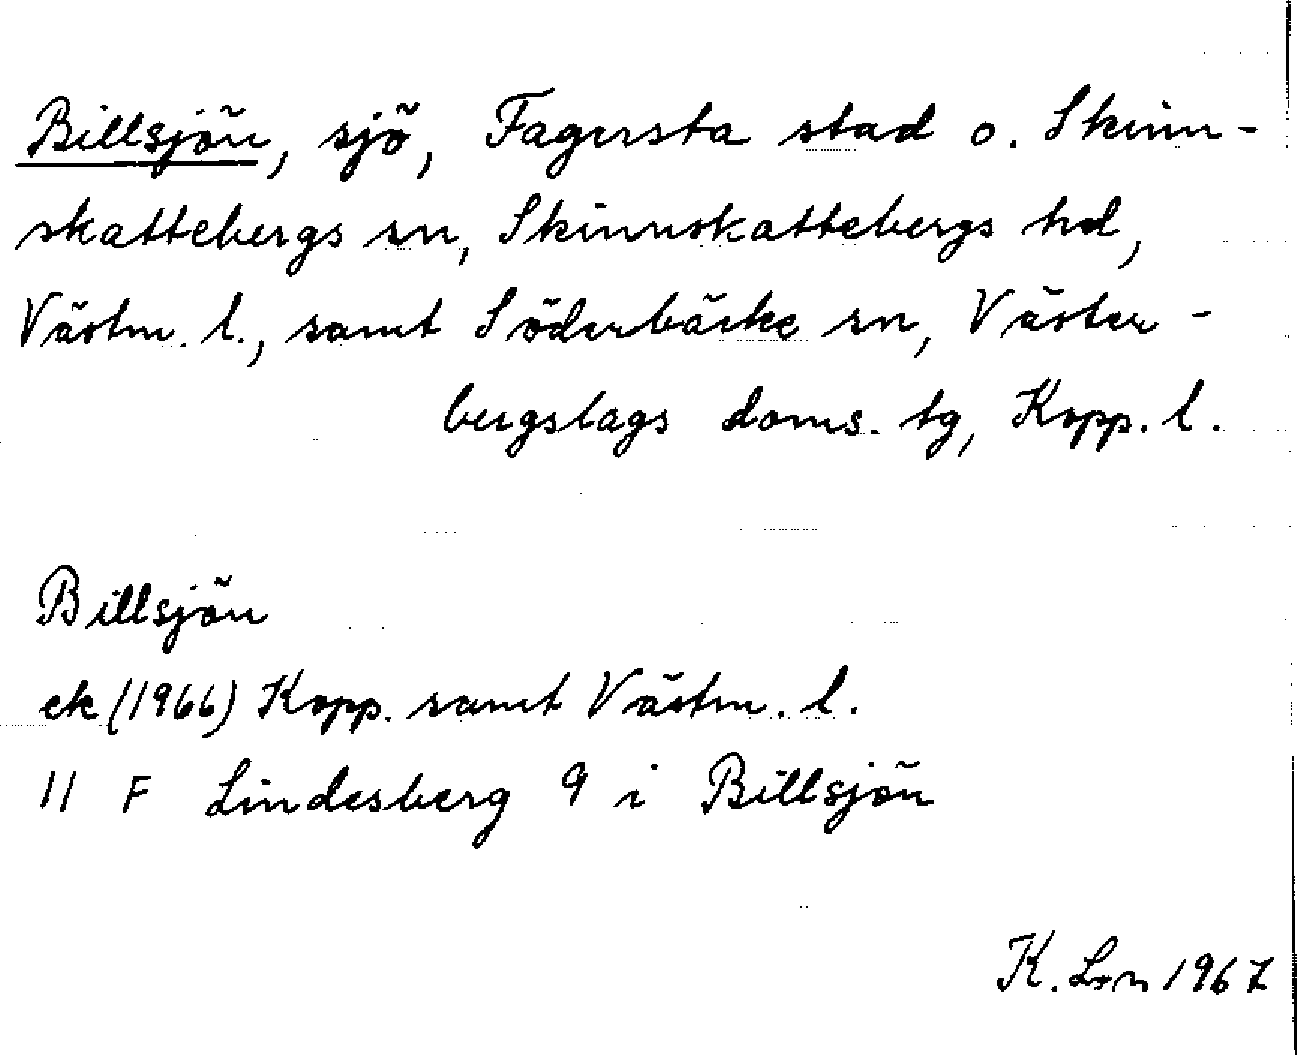 Billsjön, sjö, Fagersta stad o. Skinn-
skattebergs sn, Skinnskattebergs hd,
Västm. l., samt Söderbärke sn, Väster-
bergslags doms. tg, Kopp. l.
Billsjön
ek (1966) Kopp. samt Västm. l.
11 F Lindesberg 9 i Billsjön
K. Lsn 1967